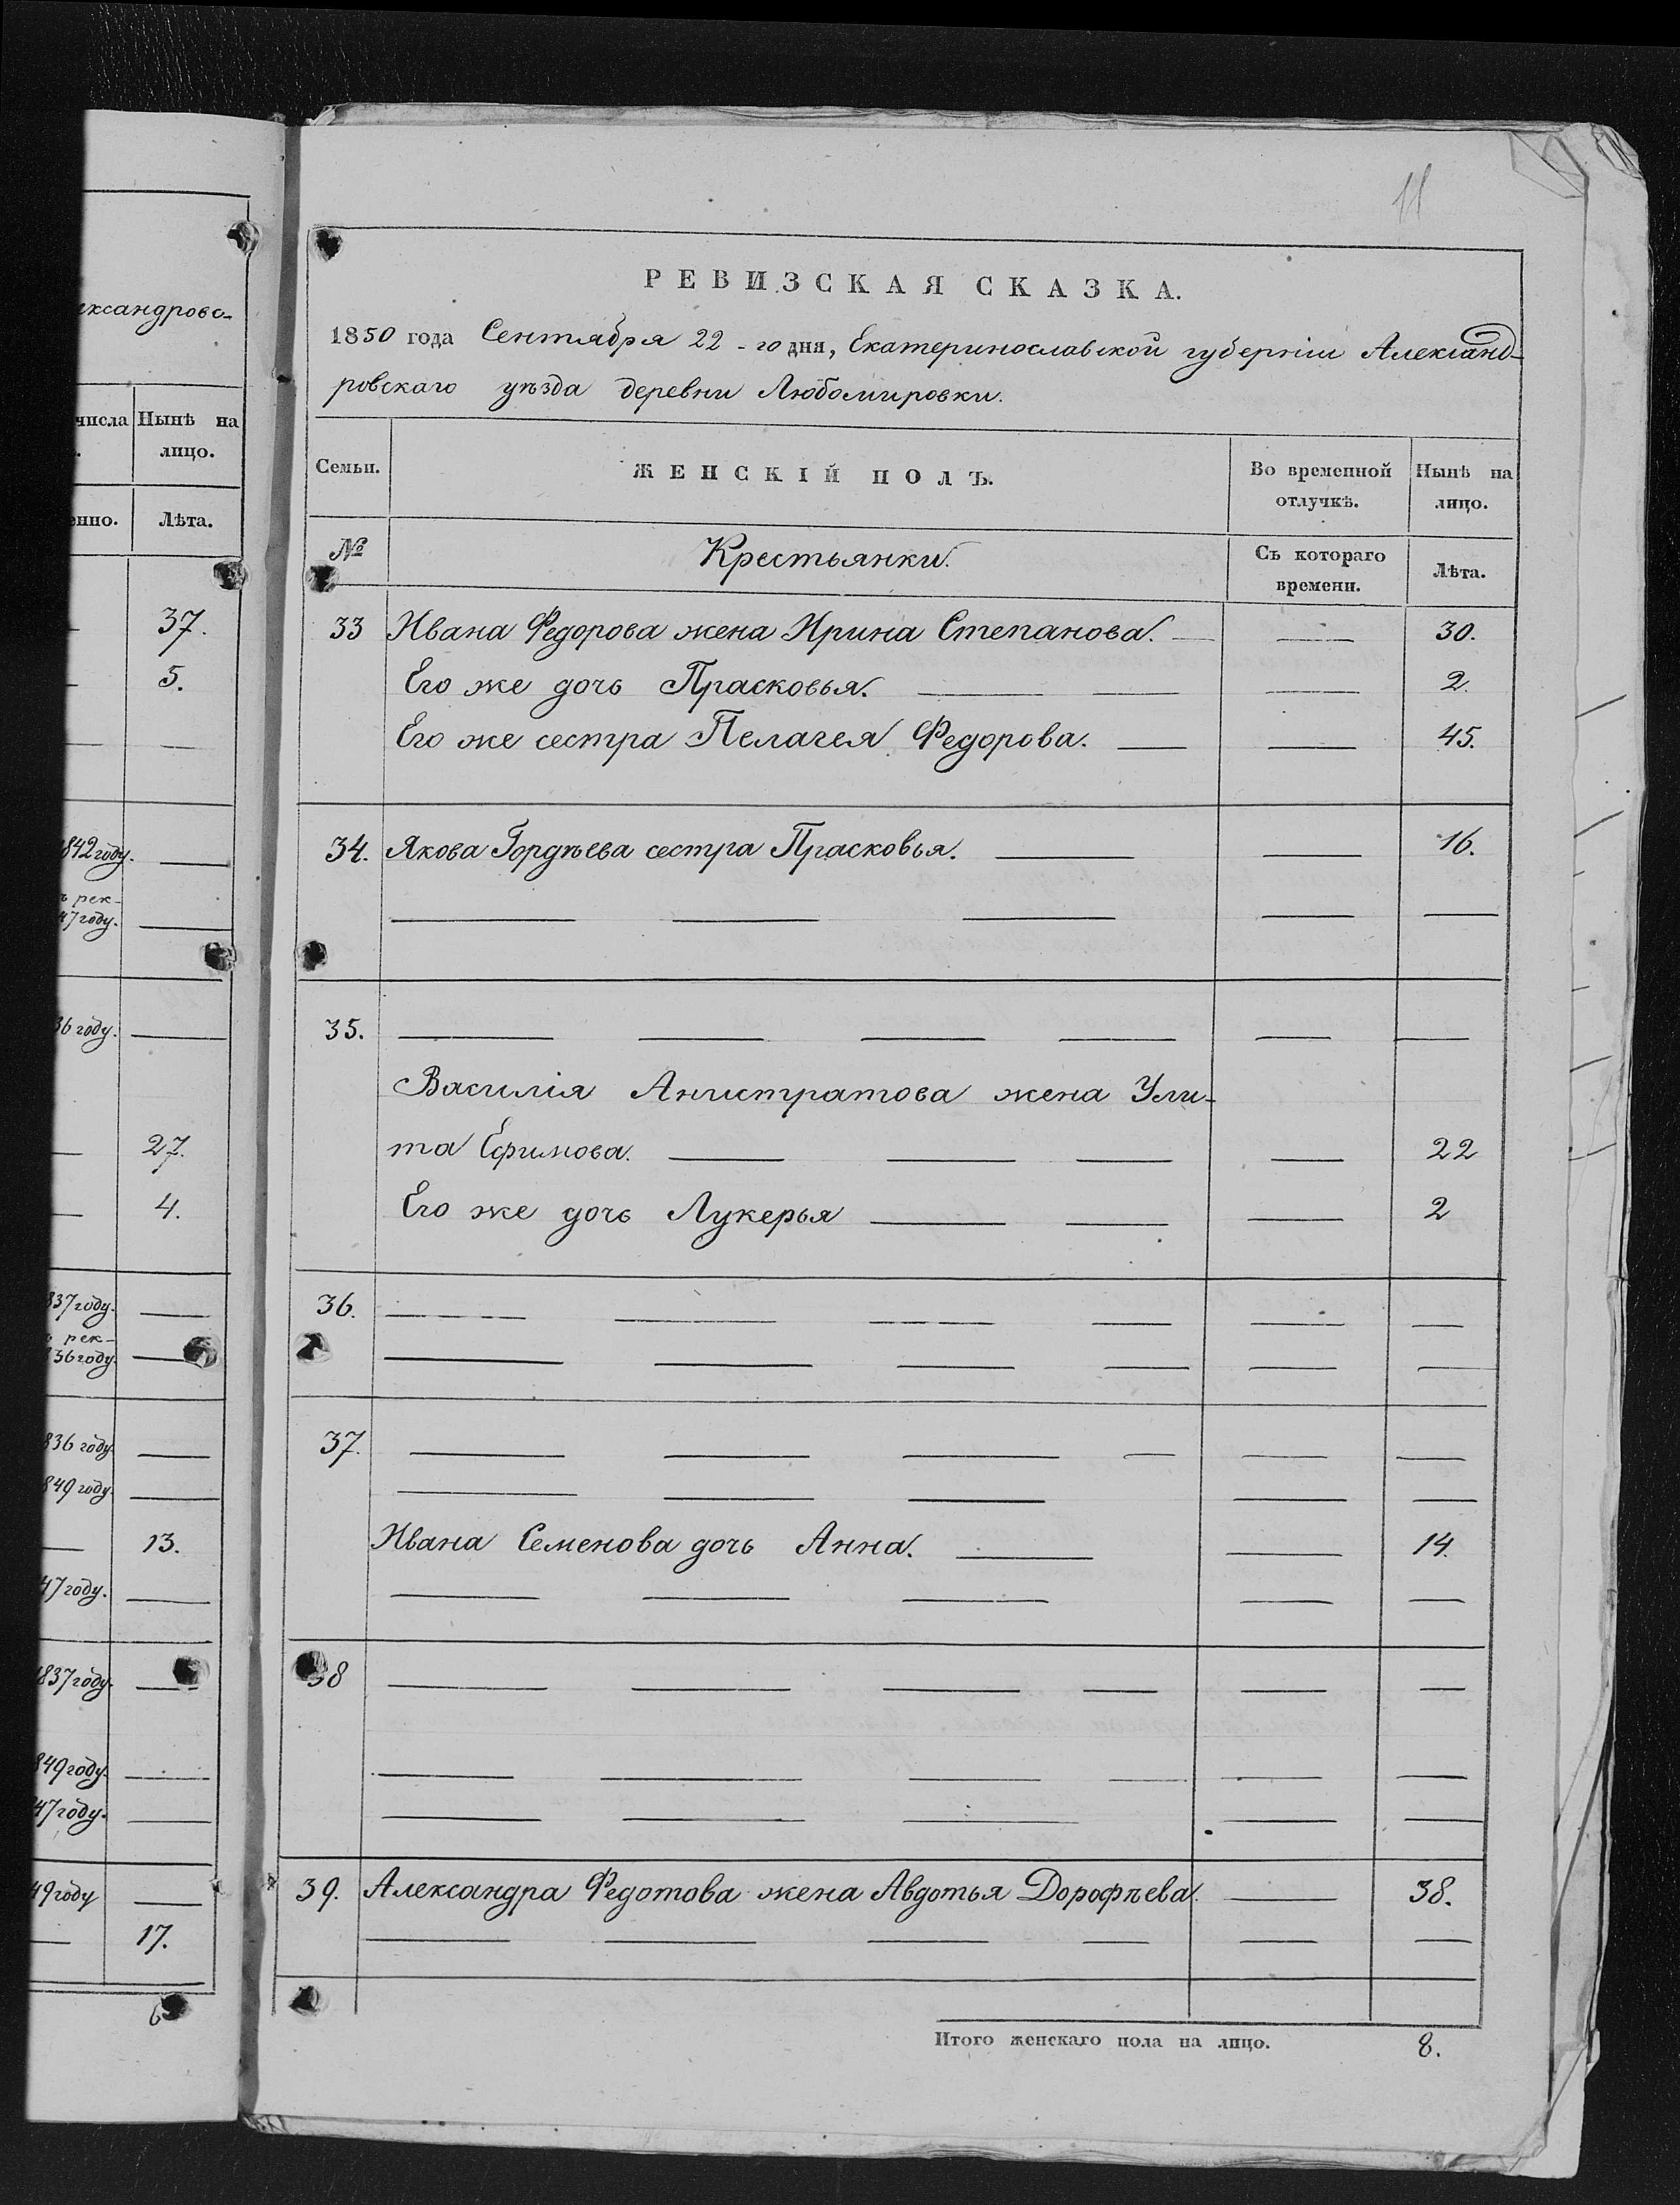 ександровс-
числа Нынѣ на
лицо.
енно. Лѣта.
37.
5.
1842 году. —
ъ рек-
47 году. —
36 году. —
27.
4.
837 году. —
ъ рек-
836 году. —
836 году —
849 году. —
13.
47 году. —
1837 году. —
849 году. —
47 году. —
49 году —
17.
6
11
РЕВИЗСКАЯ СКАЗКА.
1850 года Сентября 22-го дня, Екатеринославской губерніи Александ-
ровскаго уѣзда деревни Любомировки.
Семьи. ЖЕНСКІЙ ПОЛЪ. Во временной отлучкѣ. Нынѣ на лицо.
№ Крестьянки. Съ котораго времени. Лѣта.
33 Ивана Федорова жена Ирина Степанова. — — 30.
Его же дочь Прасковья. — — — 2.
Его же сестра Пелагея Федорова. — — 45.
34. Якова Гордѣева сестра Прасковья. — — 16.
— — — — —
35. — — — — — —
Василія Анистратова жена Ули-
та Ефимова. — — — — 22
Его же дочь Лукерья — — — 2
36. — — — — — —
— — — — — —
37. — — — — — —
— — — — —
Ивана Семенова дочь Анна. — — 14.
— — — — —
38 — — — — — —
— — — — — —
— — — — —
39. Александра Федотова жена Авдотья Дорофѣева. — 38.
— — — — — —
Итого женскаго пола на лицо. 8.